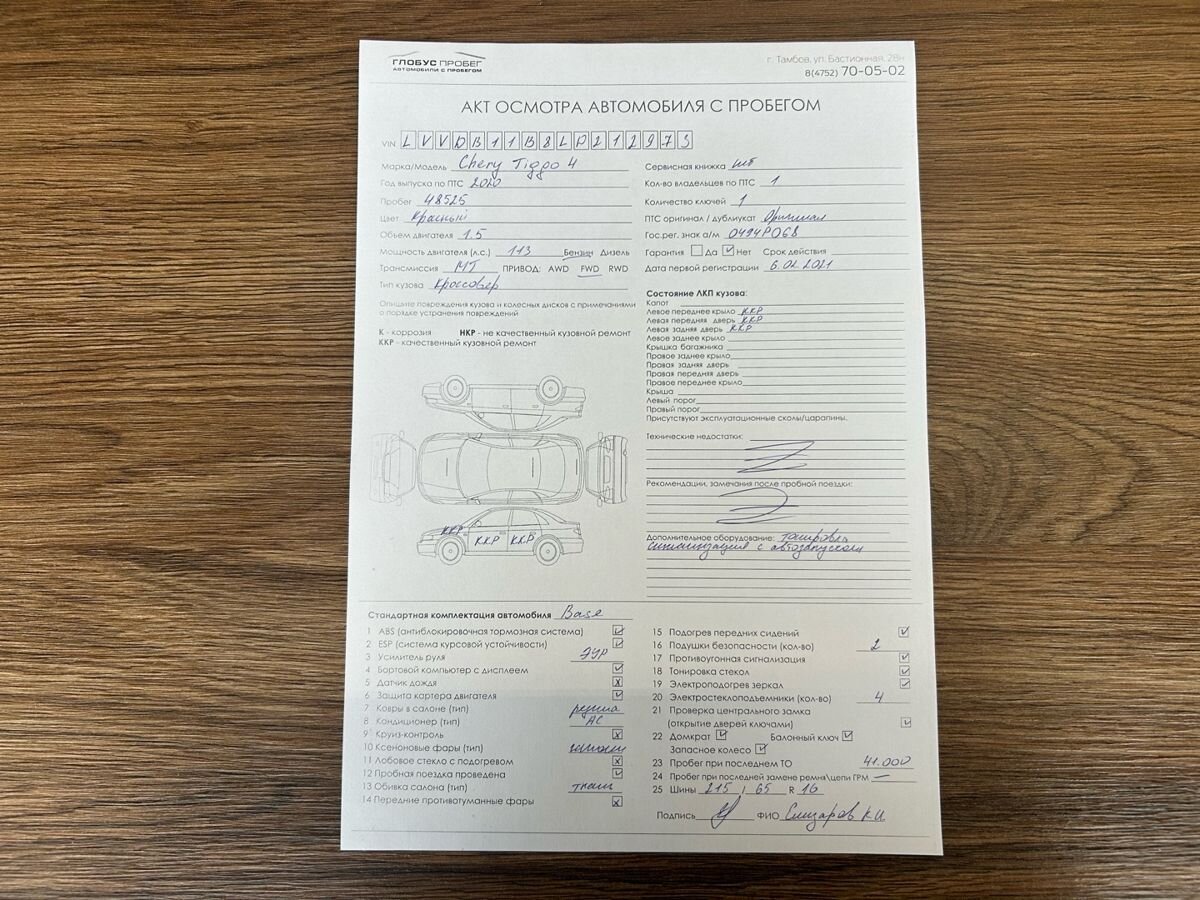 ГЛОБУС ПРОБЕГ
АВТОМОБИЛИ С ПРОБЕГОМ
г. Тамбов, ул. Бастионная, 28н
8(4752) 70-05-02
АКТ ОСМОТРА АВТОМОБИЛЯ С ПРОБЕГОМ
VIN LVVDB11B8LD212973
Марка/Модель Chery Tiggo 4
Год выпуска по ПТС 2020
Пробег 48525
Цвет Красный
Объем двигателя 1.5
Мощность двигателя (л.с.) 113 Бензин Дизель
Трансмиссия МТ ПРИВОД: AWD FWD RWD
Тип кузова Кроссовер
Опишите повреждения кузова и колесных дисков с примечаниями
о порядке устранения повреждений
К - коррозия НКР - не качественный кузовной ремонт
ККР - качественный кузовной ремонт
ККР
ККР ККР
Сервисная книжка нет
Кол-во владельцев по ПТС 1
Количество ключей 1
ПТС оригинал / дубликат Оригинал
Гос.рег. знак а/м О494РО68
Гарантия Да Нет Срок действия
Дата первой регистрации 6.02.2021
Состояние ЛКП кузова:
Капот
Левое переднее крыло ККР
Левая передняя дверь ККР
Левая задняя дверь ККР
Левое заднее крыло
Крышка багажника
Правое заднее крыло
Правая задняя дверь
Правая передняя дверь
Правое переднее крыло
Крыша
Левый порог
Правый порог
Присутствуют эксплуатационные сколы/царапины.
Технические недостатки:
Рекомендации, замечания после пробной поездки:
Дополнительное оборудование: тонировка
сигнализация с автозапуском
Стандартная комплектация автомобиля Base
1 ABS (антиблокировочная тормозная система)
2 ESP (система курсовой устойчивости)
3 Усилитель руля ЭУР
4 Бортовой компьютер с дисплеем
5 Датчик дождя
6 Защита картера двигателя
7 Ковры в салоне (тип) резина
8 Кондиционер (тип) АС
9 Круиз-контроль
10 Ксеноновые фары (тип)
11 Лобовое стекло с подогревом
12 Пробная поездка проведена
13 Обивка салона (тип) ткань
14 Передние противотуманные фары
15 Подогрев передних сидений
16 Подушки безопасности (кол-во) 2
17 Противоугонная сигнализация
18 Тонировка стекол
19 Электроподогрев зеркал
20 Электростеклоподъемники (кол-во) 4
21 Проверка центрального замка
(открытие дверей ключами)
22 Домкрат Балонный ключ
Запасное колесо
23 Пробег при последнем ТО 41.000
24 Пробег при последней замене ремня\цепи ГРМ —
25 Шины 215 / 65 R 16
Подпись ФИО